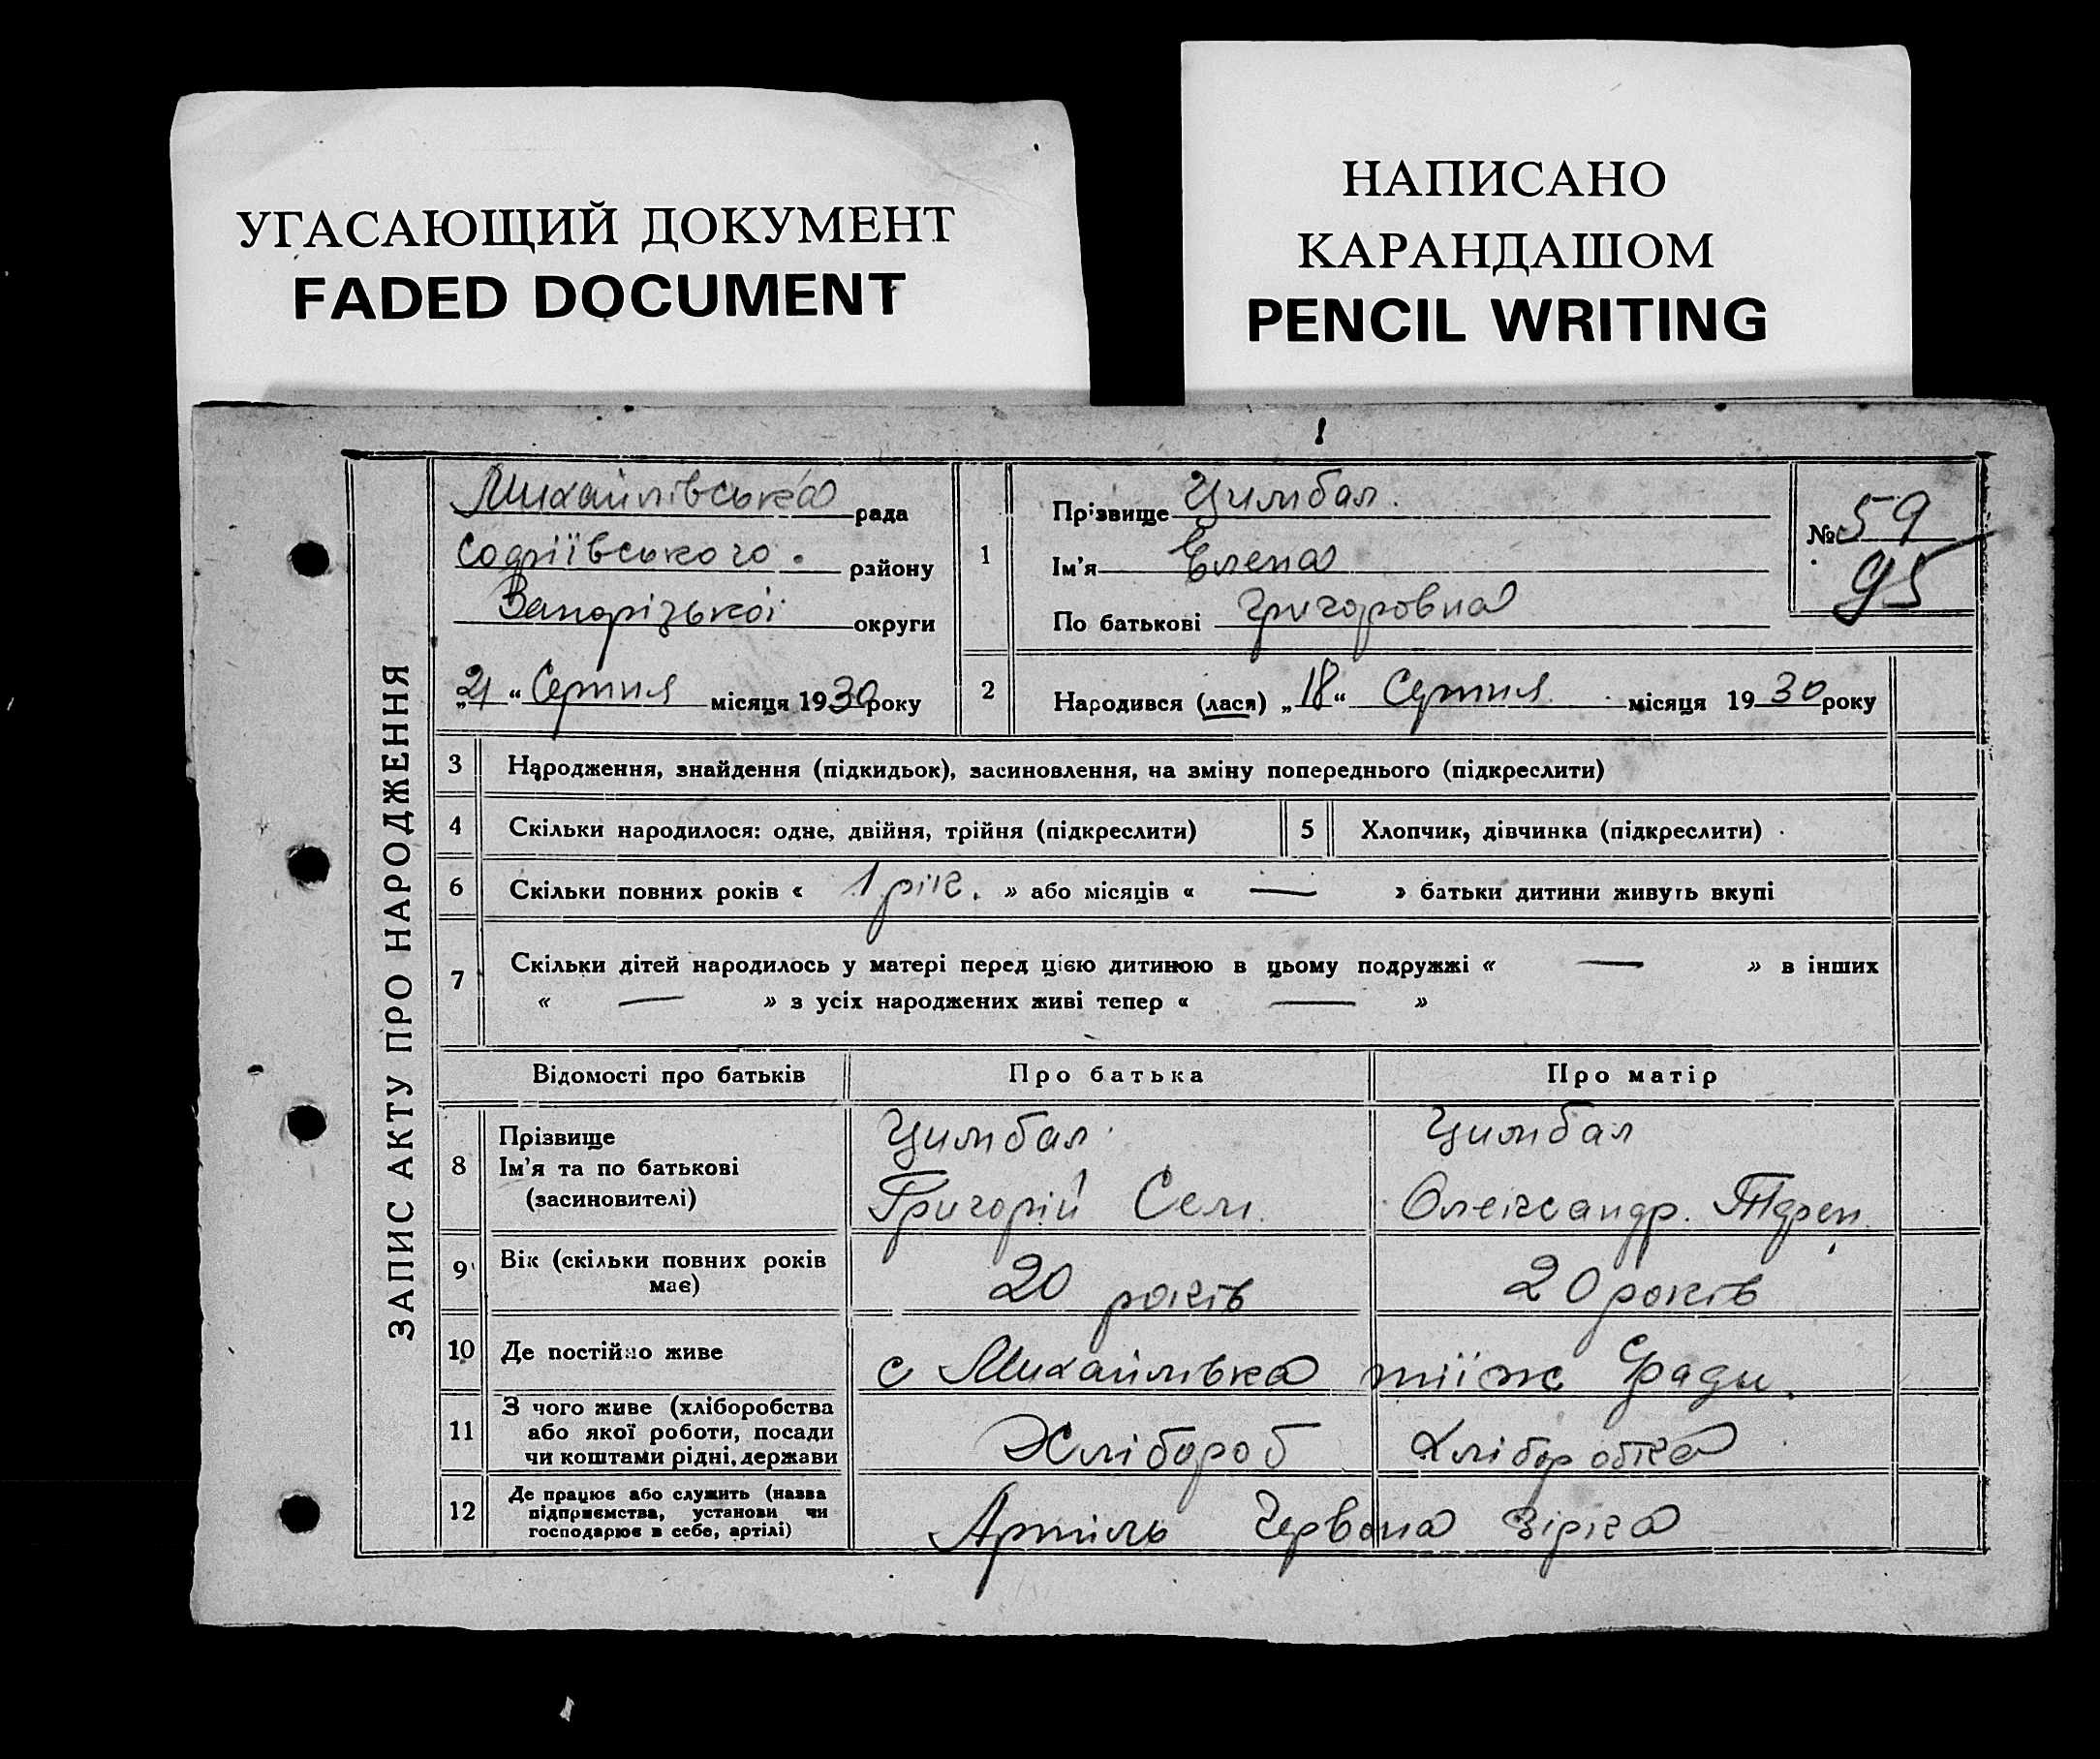 УГАСАЮЩИЙ ДОКУМЕНТ
FADED DOCUMENT
НАПИСАНО
КАРАНДАШОМ
PENCIL WRITING
ЗАПИС АКТУ ПРО НАРОДЖЕННЯ
Михайлівська рада
Софіївського району
Запорізької округи
„21“ Серпня місяця 1930 року
1 Прізвище Цимбал.
Ім'я Єлена
По батькові Григоровна
№ 59
95
2 Народився (лася) „18“ Серпня місяця 1930 року
3 Народження, знайдення (підкидьок), засиновлення, на зміну попереднього (підкреслити)
4 Скільки народилося: одне, двійня, трійня (підкреслити) 5 Хлопчик, дівчинка (підкреслити)
6 Скільки повних років « 1 рік. » або місяців « — » батьки дитини живуть вкупі
7 Скільки дітей народилось у матері перед цією дитиною в цьому подружжі « — » в інших
« — » з усіх народжених живі тепер « — »
Відомості про батьків Про батька Про матір
8 Прізвище Цимбал Цимбал
Ім'я та по батькові
(засиновителі) Григорій Сем. Олександр.
9 Вік (скільки повних років
має) 20 років 20 років
10 Де постійно живе с Михайлівка тіїж С/ради.
11 З чого живе (хліборобства
або якої роботи, посади
чи коштами рідні, держави Хлібороб Хліборобка
12 Де працює або служить (назва
підприємства, установи чи
господарює в себе, артілі) Артіль Червона зірка